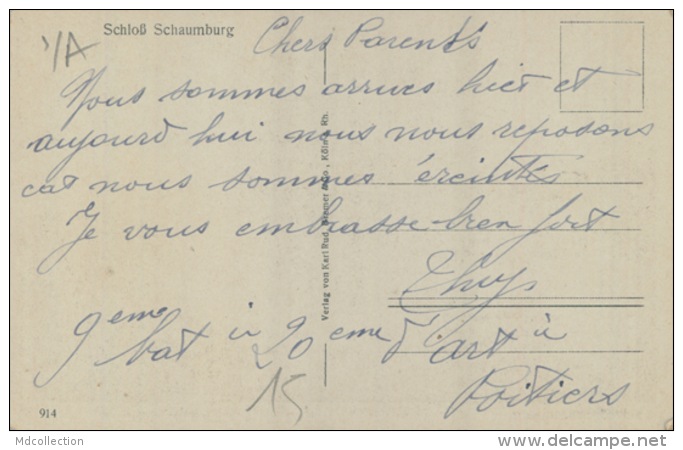 Schloß Schaumburg
1/A
Chers Parents
Nous sommes arrives hier et
aujourd hui nous nous reposons
car nous sommes éreintés
Je vous embrasse bien fort
9eme bat 20eme d'art à
Poitiers
15
Verlag von Karl Rud. Bremer & Co., Köln a. Rh.
914
Mdcollection
www.delcampe.net